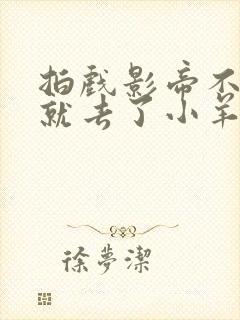 拍戏影帝不
就去了小羊
徐夢潔